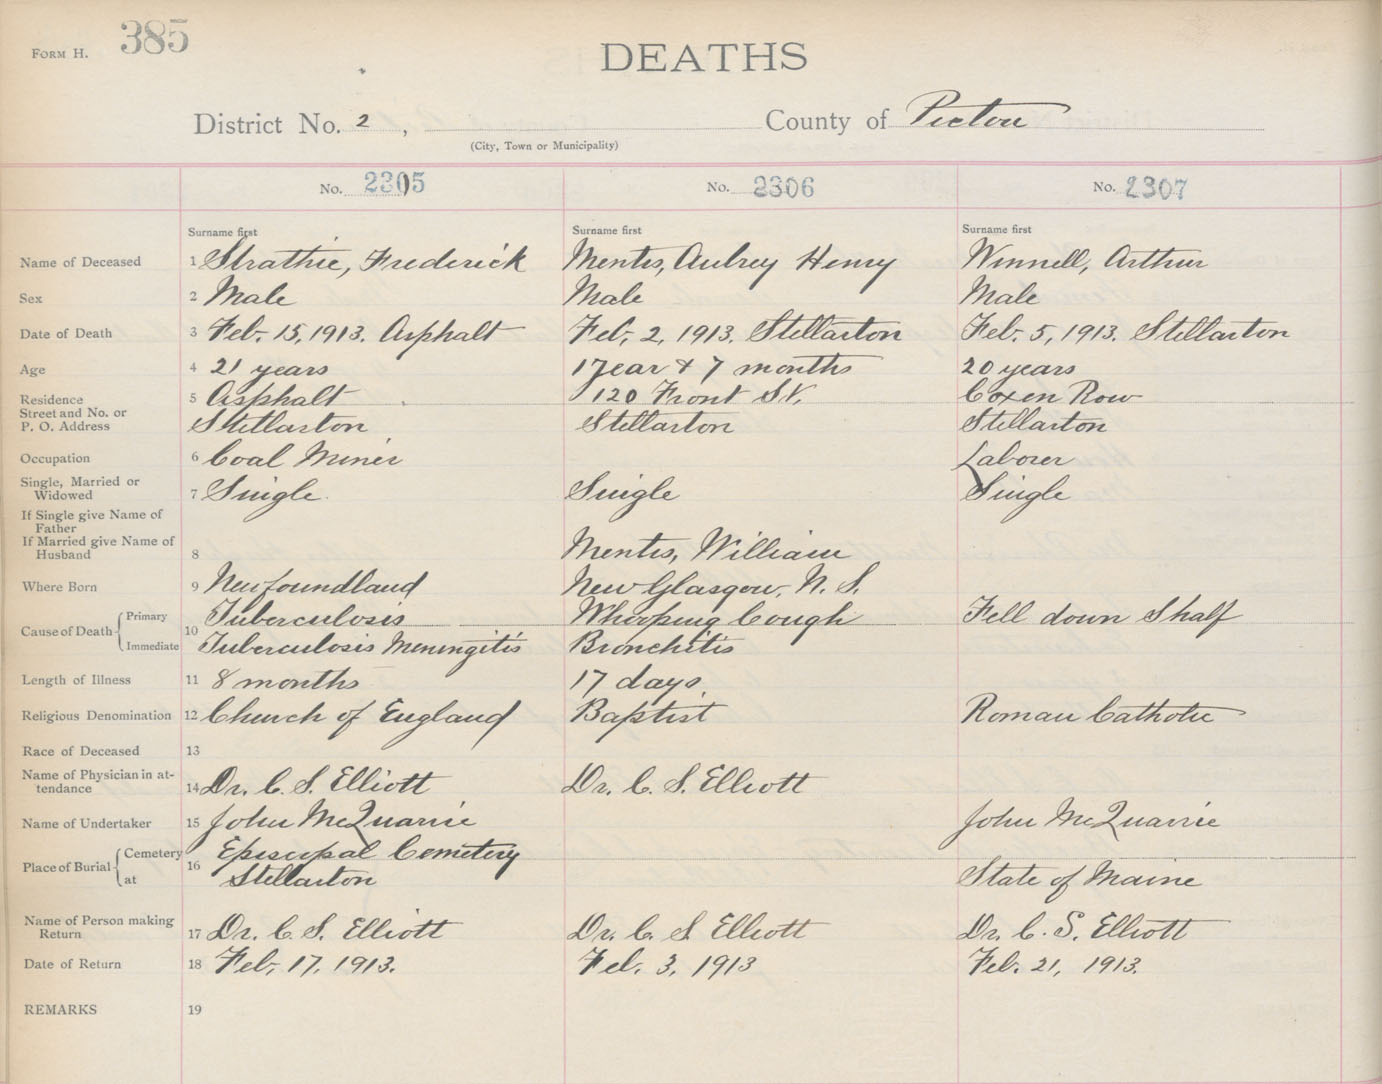 FORM H. 385
DEATHS
District No. 2, County of Pictou
(City, Town or Municipality)
No. 2305 No. 2306 No. 2307
Surname first Surname first Surname first
Name of Deceased 1 Strathie, Frederick Mentis, Aubrey Henry Winnell, Arthur
Sex 2 Male Male Male
Date of Death 3 Feb. 15, 1913. Asphalt Feb. 2, 1913. Stellarton Feb. 5, 1913. Stellarton
Age 4 21 years 1 year & 7 months 20 years
Residence 5 Asphalt 120 Front St. Coxen Row
Street and No. or
P. O. Address Stellarton Stellarton Stellarton
Occupation 6 Coal Miner Laborer
Single, Married or
Widowed 7 Single. Single Single
If Single give Name of
Father
If Married give Name of
Husband 8 Mentis, William
Where Born 9 Newfoundland New Glasgow, N. S.
Cause of Death Primary 10 Tuberculosis Whooping Cough Fell down Shaft
Immediate Tuberculosis Meningitis Bronchitis
Length of Illness 11 8 months 17 days.
Religious Denomination 12 Church of England Baptist Roman Catholic
Race of Deceased 13
Name of Physician in at-
tendance 14 Dr. C. S. Elliott Dr. C. S. Elliott
Name of Undertaker 15 John McQuarrie John McQuarrie
Place of Burial Cemetery 16 Episcopal Cemetery
at Stellarton State of Maine
Name of Person making
Return 17 Dr. C. S. Elliott Dr. C. S. Elliott Dr. C. S. Elliott
Date of Return 18 Feb. 17, 1913. Feb. 3, 1913 Feb. 21, 1913.
REMARKS 19